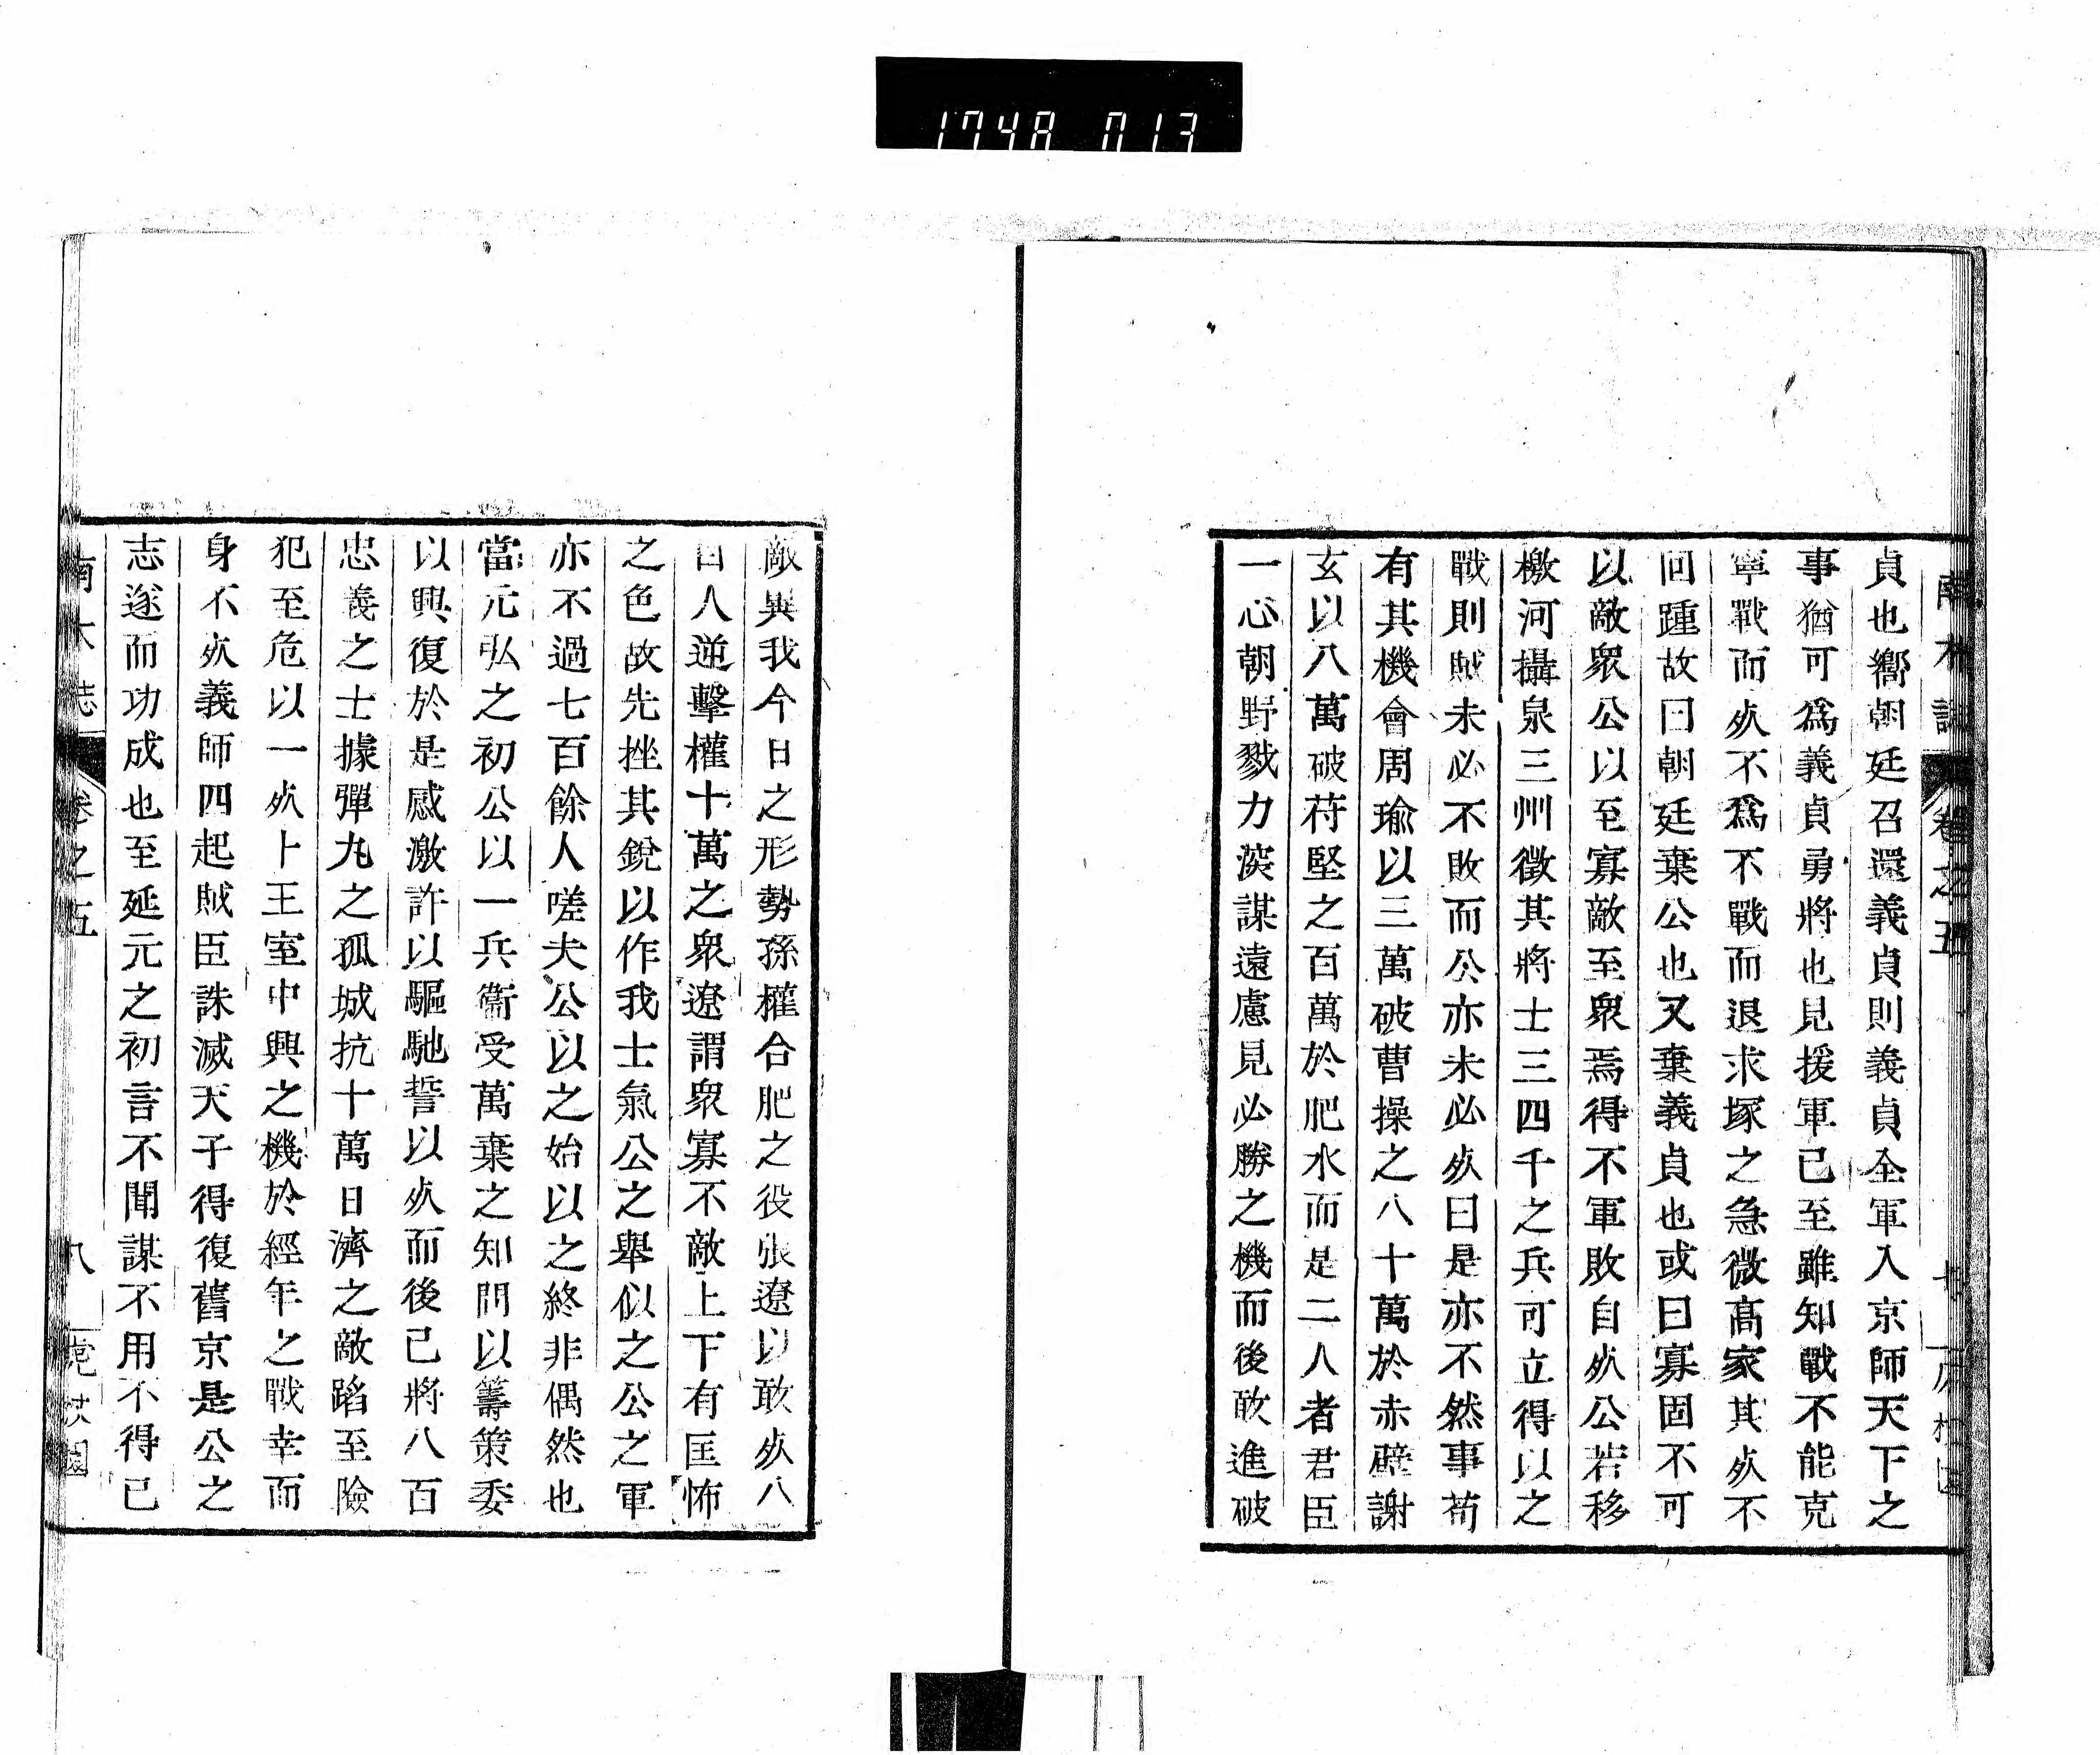 174A 013
南木誌 卷之五
貞也嚮朝廷召還義貞則義貞全軍入京師天下之
事猶可爲義貞勇將也見援軍已至雖知戰不能克
寧戰而㱔不爲不戰而退求塚之急微高家其㱔不
回踵故曰朝廷棄公也又棄義貞也或曰寡固不可
以敵衆公以至寡敵至衆焉得不軍敗自㱔公若移
檄河攝泉三州徵其將士三四千之兵可立得以之
戰則賊未必不敗而公亦未必㱔曰是亦不然事苟
有其機會周瑜以三萬破曹操之八十萬於赤壁謝
玄以八萬破苻堅之百萬於肥水而是二人者君臣
一心朝野戮力深謀遠慮見必勝之機而後敢進破
敵異我今日之形勢孫權合肥之役張遼以敢㱔八
百人逆擊權十萬之衆遼謂衆寡不敵上下有匡怖
之色故先挫其銳以作我士氣公之舉似之公之軍
亦不過七百餘人嗟夫公以之始以之終非偶然也
當元弘之初公以一兵衞受萬乘之知問以籌策委
以興復於是感激許以驅馳誓以㱔而後已將八百
忠義之士據彈丸之孤城抗十萬日濟之敵蹈至險
犯至危以一㱔卜王室中興之機於經年之戰幸而
身不㱔義師四起賊臣誅滅天子得復舊京是公之
志遂而功成也至延元之初言不聞謀不用不得已
南木誌 卷之五 八